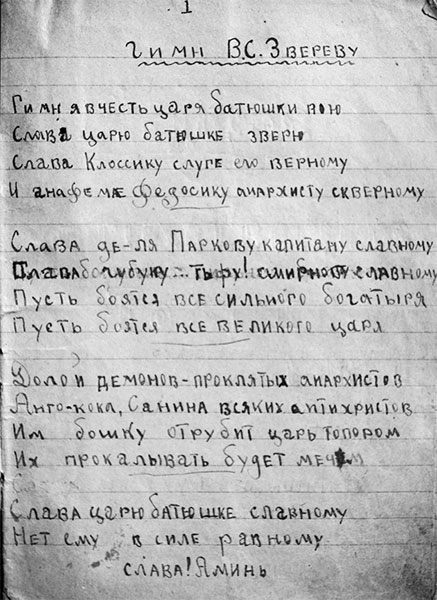 1
Гимн В.С. Звереву
Гимн я в честь царя батюшки вою
Слава царю батюшке зверю
Слава Клоссику слуге его верному
И анафемæ Федосику анархисту скверному
Слава де-ля Паркову капитану славному
Слава тьфу! славному
Пусть боятся все сильного богатыря
Пусть боятся все великого царя
Долой демонов-проклятых анархистов
Анго-кока, Санина всяких антихристов
Им бошку отрубит царь топором
Их прокалывать будет мечом
Слава царю батюшке славному
Нет ему в силе равному
Слава! Яминь